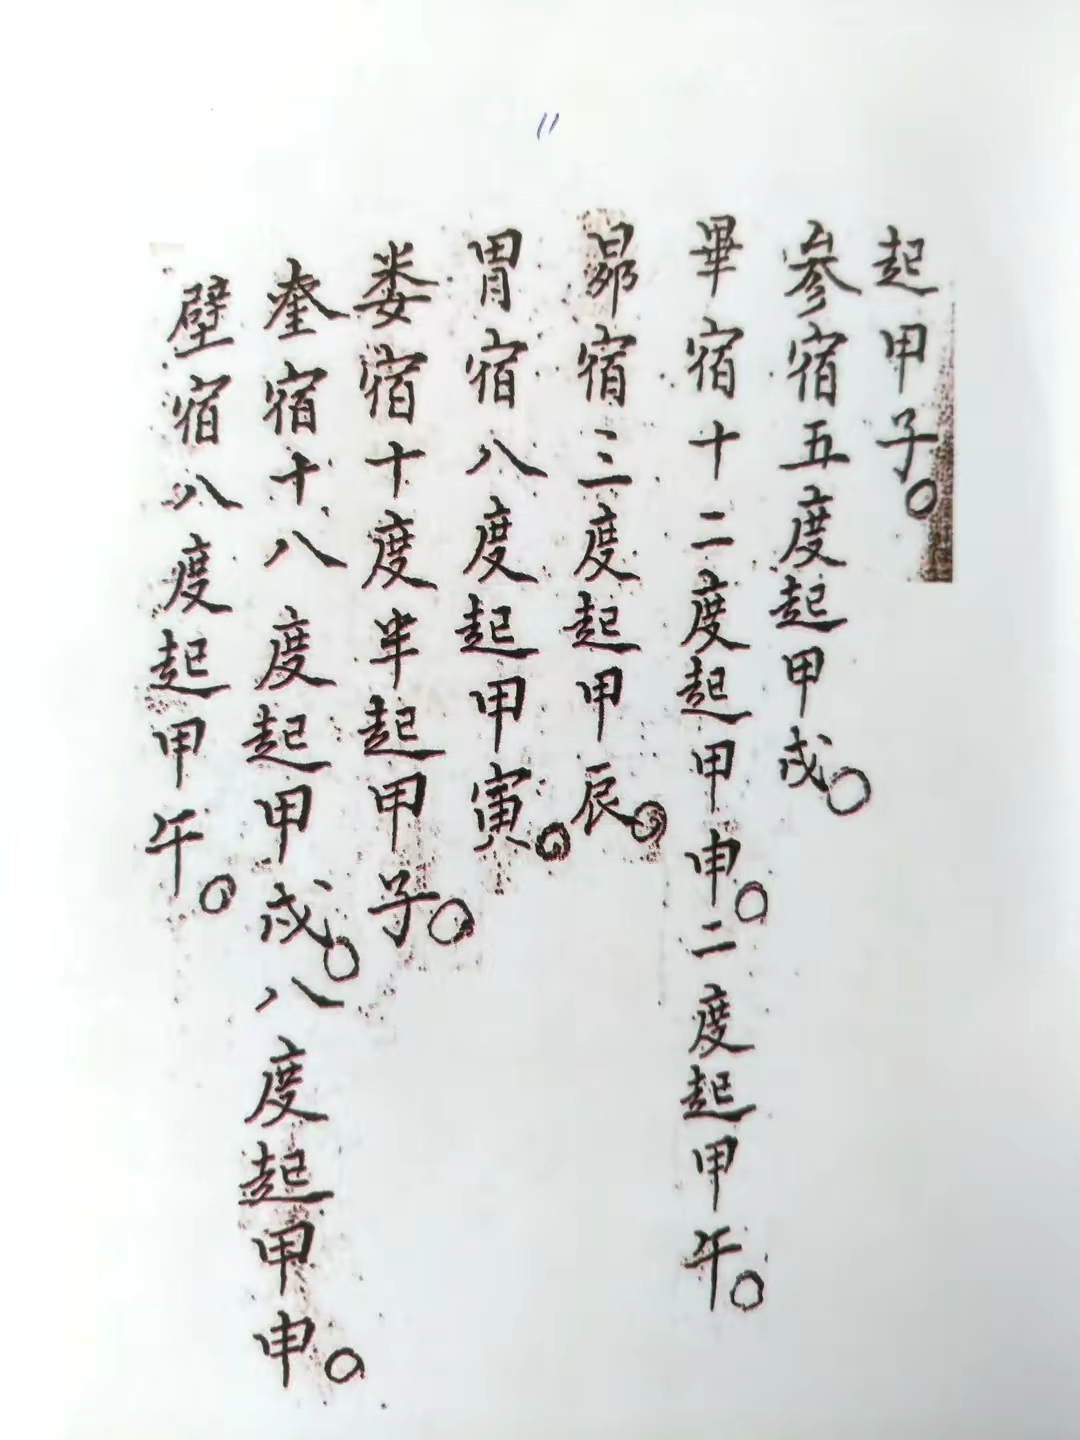 11
起甲子。
参宿五度起甲戌。
畢宿十二度起甲申。二度起甲午。
昴宿三度起甲辰。
胃宿八度起甲寅。
娄宿十度半起甲子。
奎宿十八度起甲戌。八度起甲申。
壁宿八度起甲午。